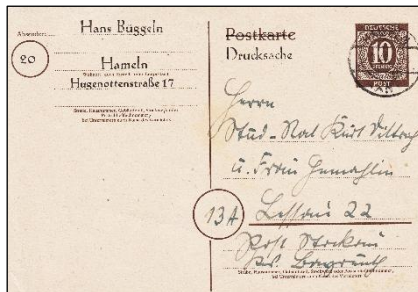 Absender:
Hans Büggeln
20
Hameln
Hugenottenstraße 17
Postkarte
Drucksache
DEUTSCHE
10
POST
Herrn
Stud.-Rat Kurt
u. Frau Gemahlin
13A
Lessau 22
Post Stockau
Kr. Bayreuth